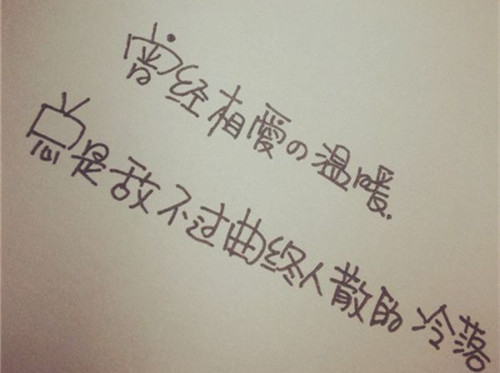 曾经相愛の温暖.
总是敌不过曲终人散的冷落